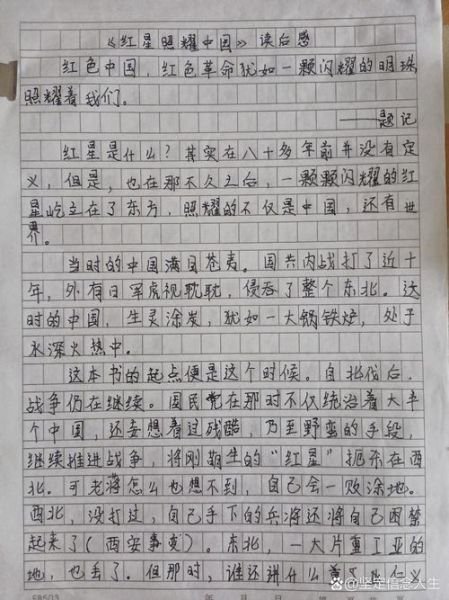 《红星照耀中国》读后感
红色中国，红色革命犹如一颗闪耀的明珠
照耀着我们。
——题记
红星是什么？其实在八十多年前并没有定
义，但是，也在那不久之后，一颗颗闪耀的红
星屹立在了东方，照耀的不仅是中国，还有世
界。
当时的中国满目苍夷。国共内战打了近十
年，外有日军虎视耽耽，侵吞了整个东北。这
时的中国，生灵涂炭，犹如一大锅铁炉，处于
水深火热中。
这本书的起点便是这个时候。自北伐后，
战争仍在继续。国民党在那时不仅统治着大半
个中国，还妄想着过残酷，乃至野蛮的手段，
继续推进战争，将刚萌生的“红星”扼杀在西
北。可老蒋怎么也想不到，自己会一败涂地。
西北，没打过，自己手下的兵将还将自己困禁
起来了（西安事变）。东北，一大片重工业的
地，也丢了。但那时，谁还讲什么
@坚定信念人生